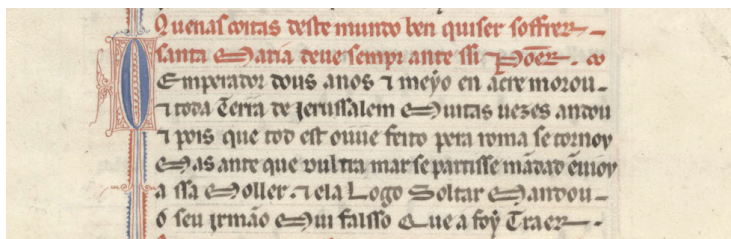 Quenas coitas deste mundo ben quiser soffrer
santa Maria deue sempr ante ssi põer.
O Emperador dous anos ⁊ meyo en acre morou
⁊ toda Terra de Jerussalem Muitas uezes andou
⁊ pois que tod est ouue feito pera roma se tornou
Mas ante que dultra mar se partisse mãdad ẽuiou
a ssa Moller. ⁊ ela Logo Soltar Mandou
o seu yrmão Mui falsso Que a foy Traer